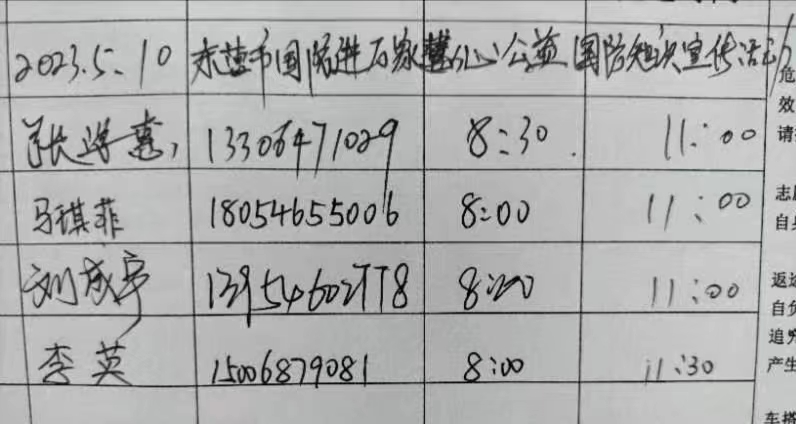 2023.5.10 东营市国防进万家慧心公益国防知识宣传活动
张学惠 13306471029 8:30 11:00
马琪菲 18054655006 8:00 11:00
刘成亭 13954602778 8:20 11:00
李英 15006879081 8:00 11:30
危
效
请
志愿
自身
返途
自负
追究
产生
车搭